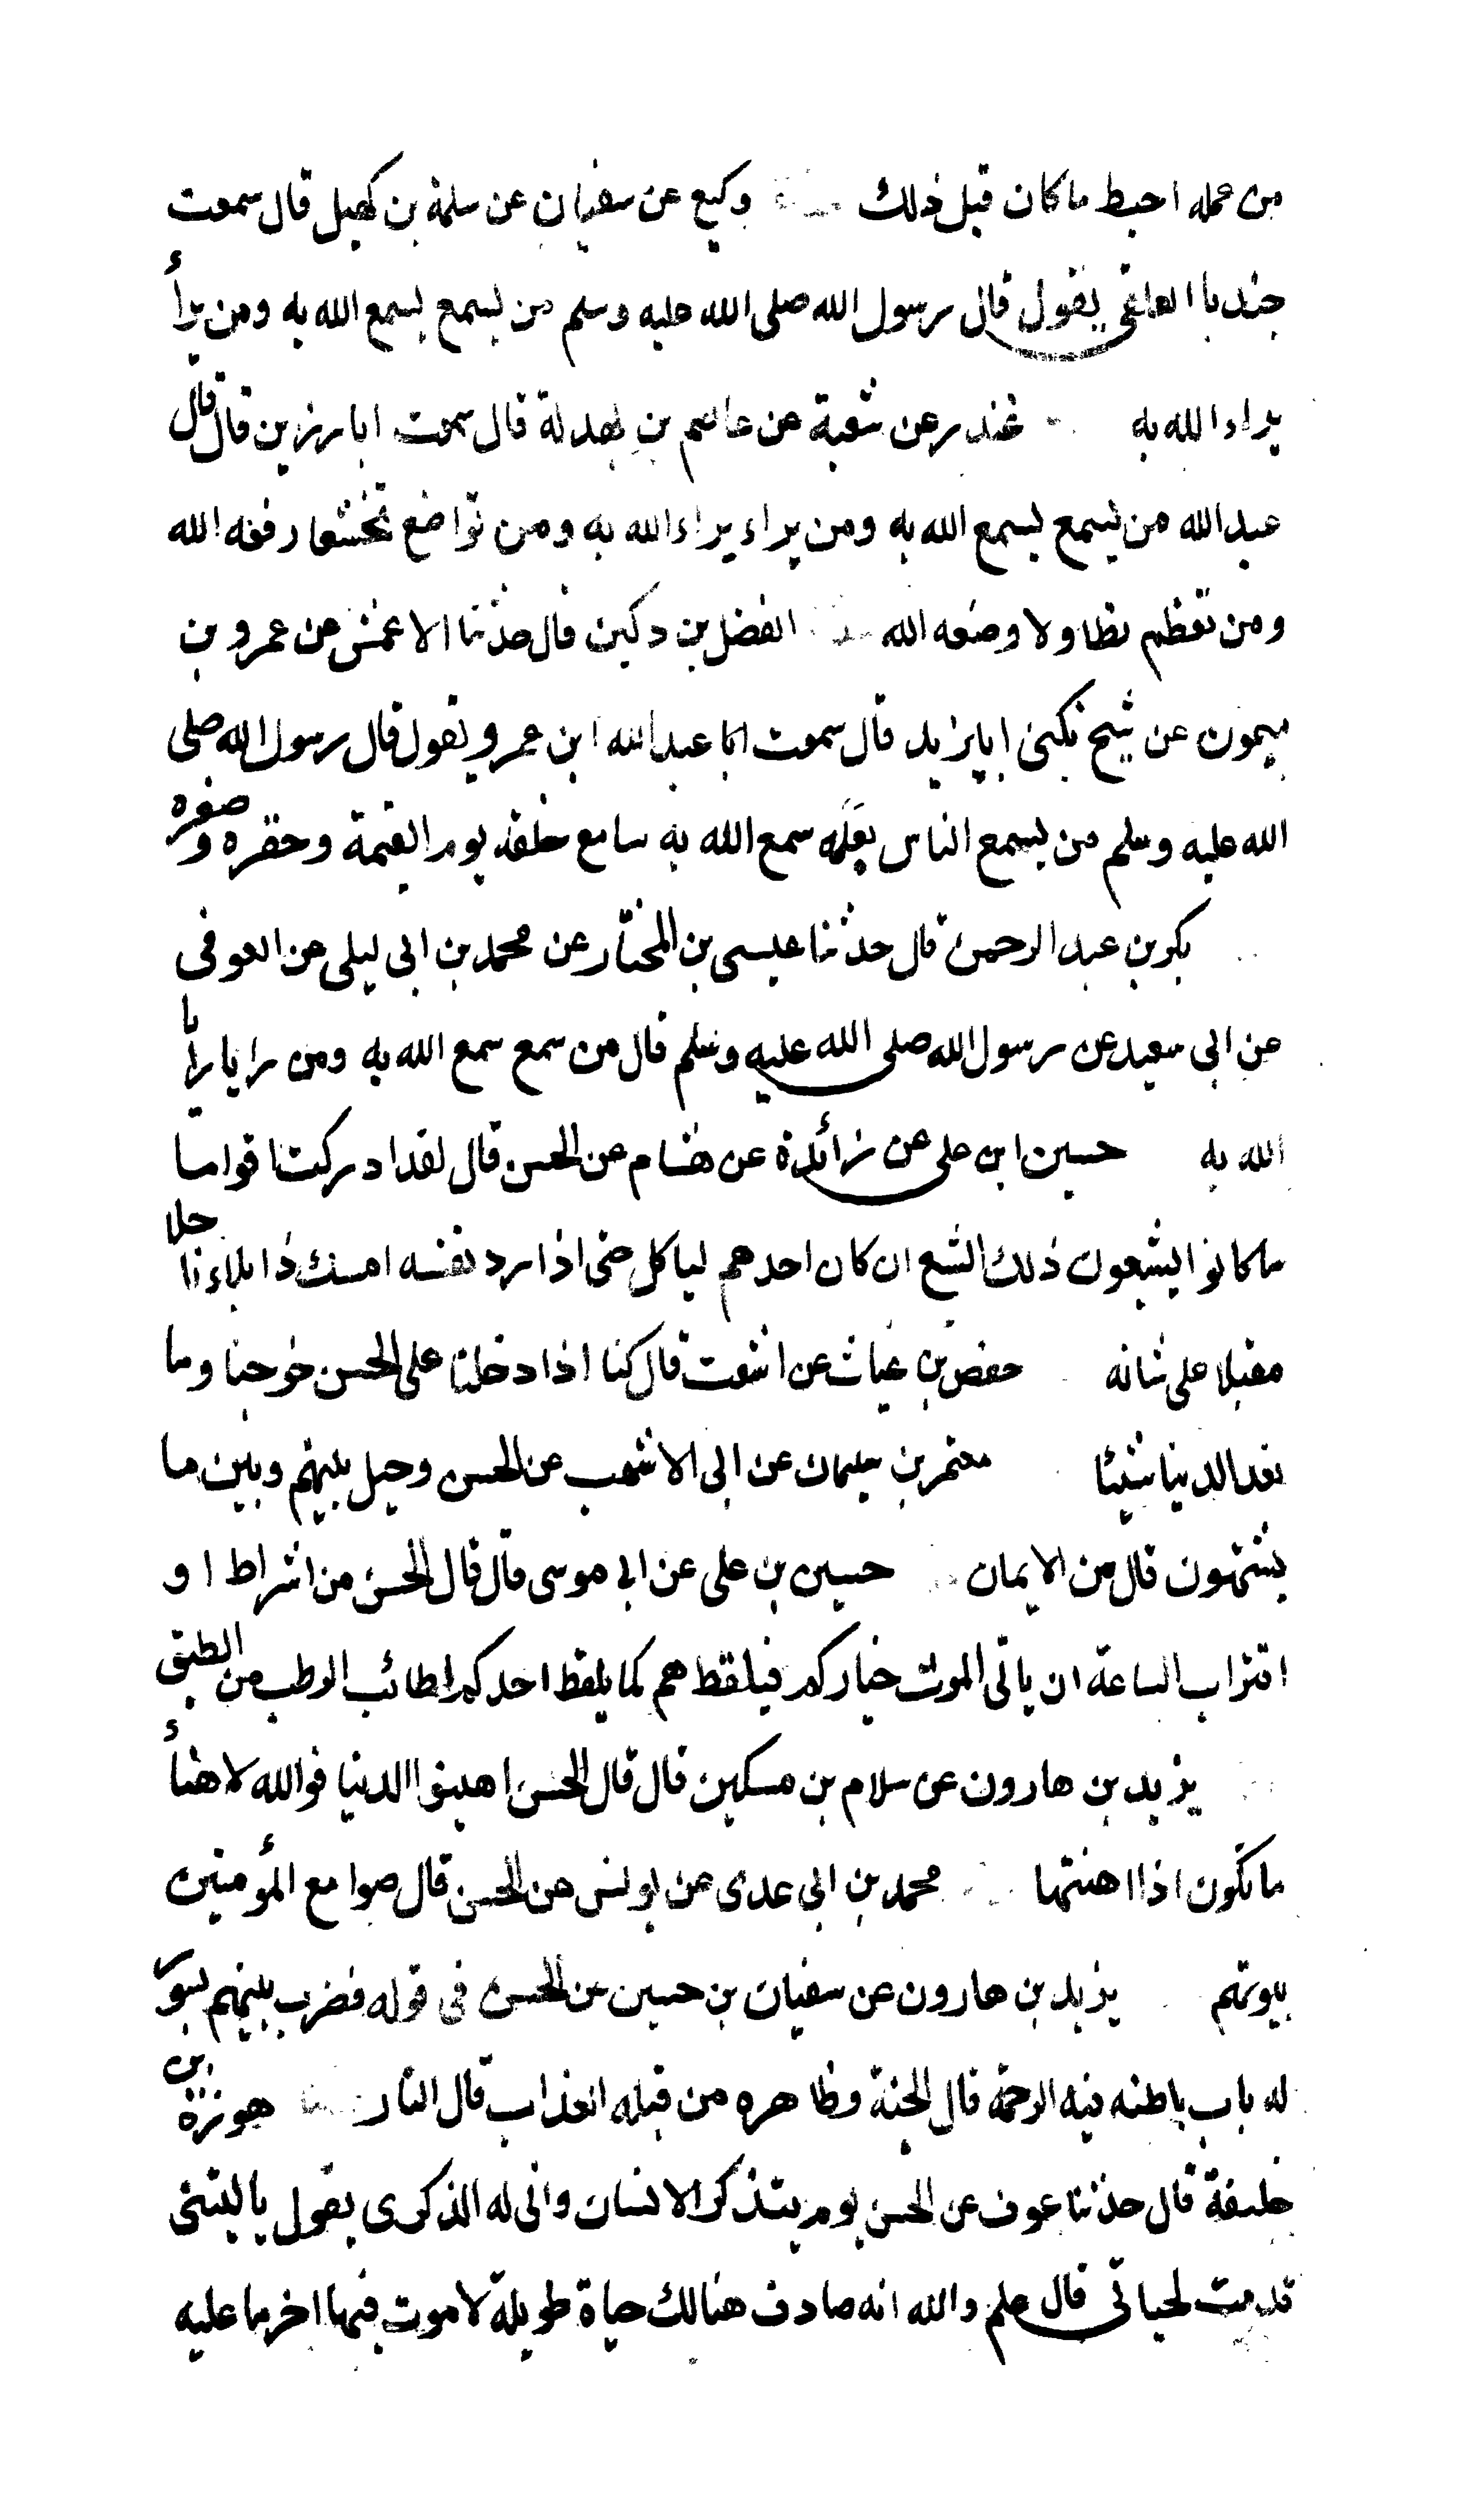 من عمله احبط ما كان قبل ذلك وكيع عن سفيان عن سلمة بن كهيل قال سمعت
جندبا العلقى يقول قال رسول الله صلى الله عليه وسلم من يسمع يسمع الله به ومن يرأ
يراء الله به غندر عن شعبة عن عاصم بن بهدلة قال سمعت ابا رزين قال قال
عبد الله من يسمع يسمع الله به ومن يراء يراء الله به ومن تواضع تخشعا رفعه الله
ومن تعظم تطاولا وضعه الله الفضل بن دكين قال حدثنا الاعمش عن عمرو بن
ميمون عن شيخ يكنى ابا يزيد قال سمعت انا عبد الله ابن عمرو يقول قال رسول الله صلى
الله عليه وسلم من يسمع الناس بعمله سمع الله به سامع خلقه يوم القيمة وحقره وصغره
بكر بن عبد الرحمن قال حدثنا عيسى بن المختار عن محمد بن ابى ليلى عن العوفى
عن ابى سعيد عن رسول الله صلى الله عليه وسلم قال من سمع سمع الله به ومن رايا رايا
الله به حسين ابن على عن زائدة عن هشام عن الحسن قال لقد ادركت اقواما
ما كانوا يشبعون ذلك الشبع ان كان احدهم لياكل حتى اذا رد نفسه امسك ذابلا ناحلا
مقبلا على شانه حفص بن غياث عن اشعث قال كنا اذا دخلنا على الحسن خرجنا وما
نعد الدنيا شيئا معتمر بن سليمان عن ابى الاشهب عن الحسن وحيل بينهم وبين ما
يشتهون قال من الايمان حسين بن على عن ابى موسى قال قال الحسن من اشراط او
اقتراب الساعة ان ياتى الموت خياركم فيلقطهم كما يلقط احدكم اطائب الرطب من الطبق
يزيد بن هارون عن سلام بن مسكين قال قال الحسن اهينوا الدنيا فوالله لاهنأ
ما تكون اذا اهنتها محمد بن ابى عدى عن يونس عن الحسن قال صوامع المؤمنين
بيوتهم يزيد بن هارون عن سفيان بن حسين عن الحسن فى قوله فضرب بينهم بسور
له باب باطنه فيه الرحمة قال الجنة وظاهره من قبله العذاب قال النار هوذة بن
خليفة قال حدثنا عوف عن الحسن يوم يتذكر الانسان وانى له الذكرى يقول يا ليتنى
قدمت لحياتى قال علم والله انه صادف هنالك حياة طويلة لا موت فيها اخر ما عليه